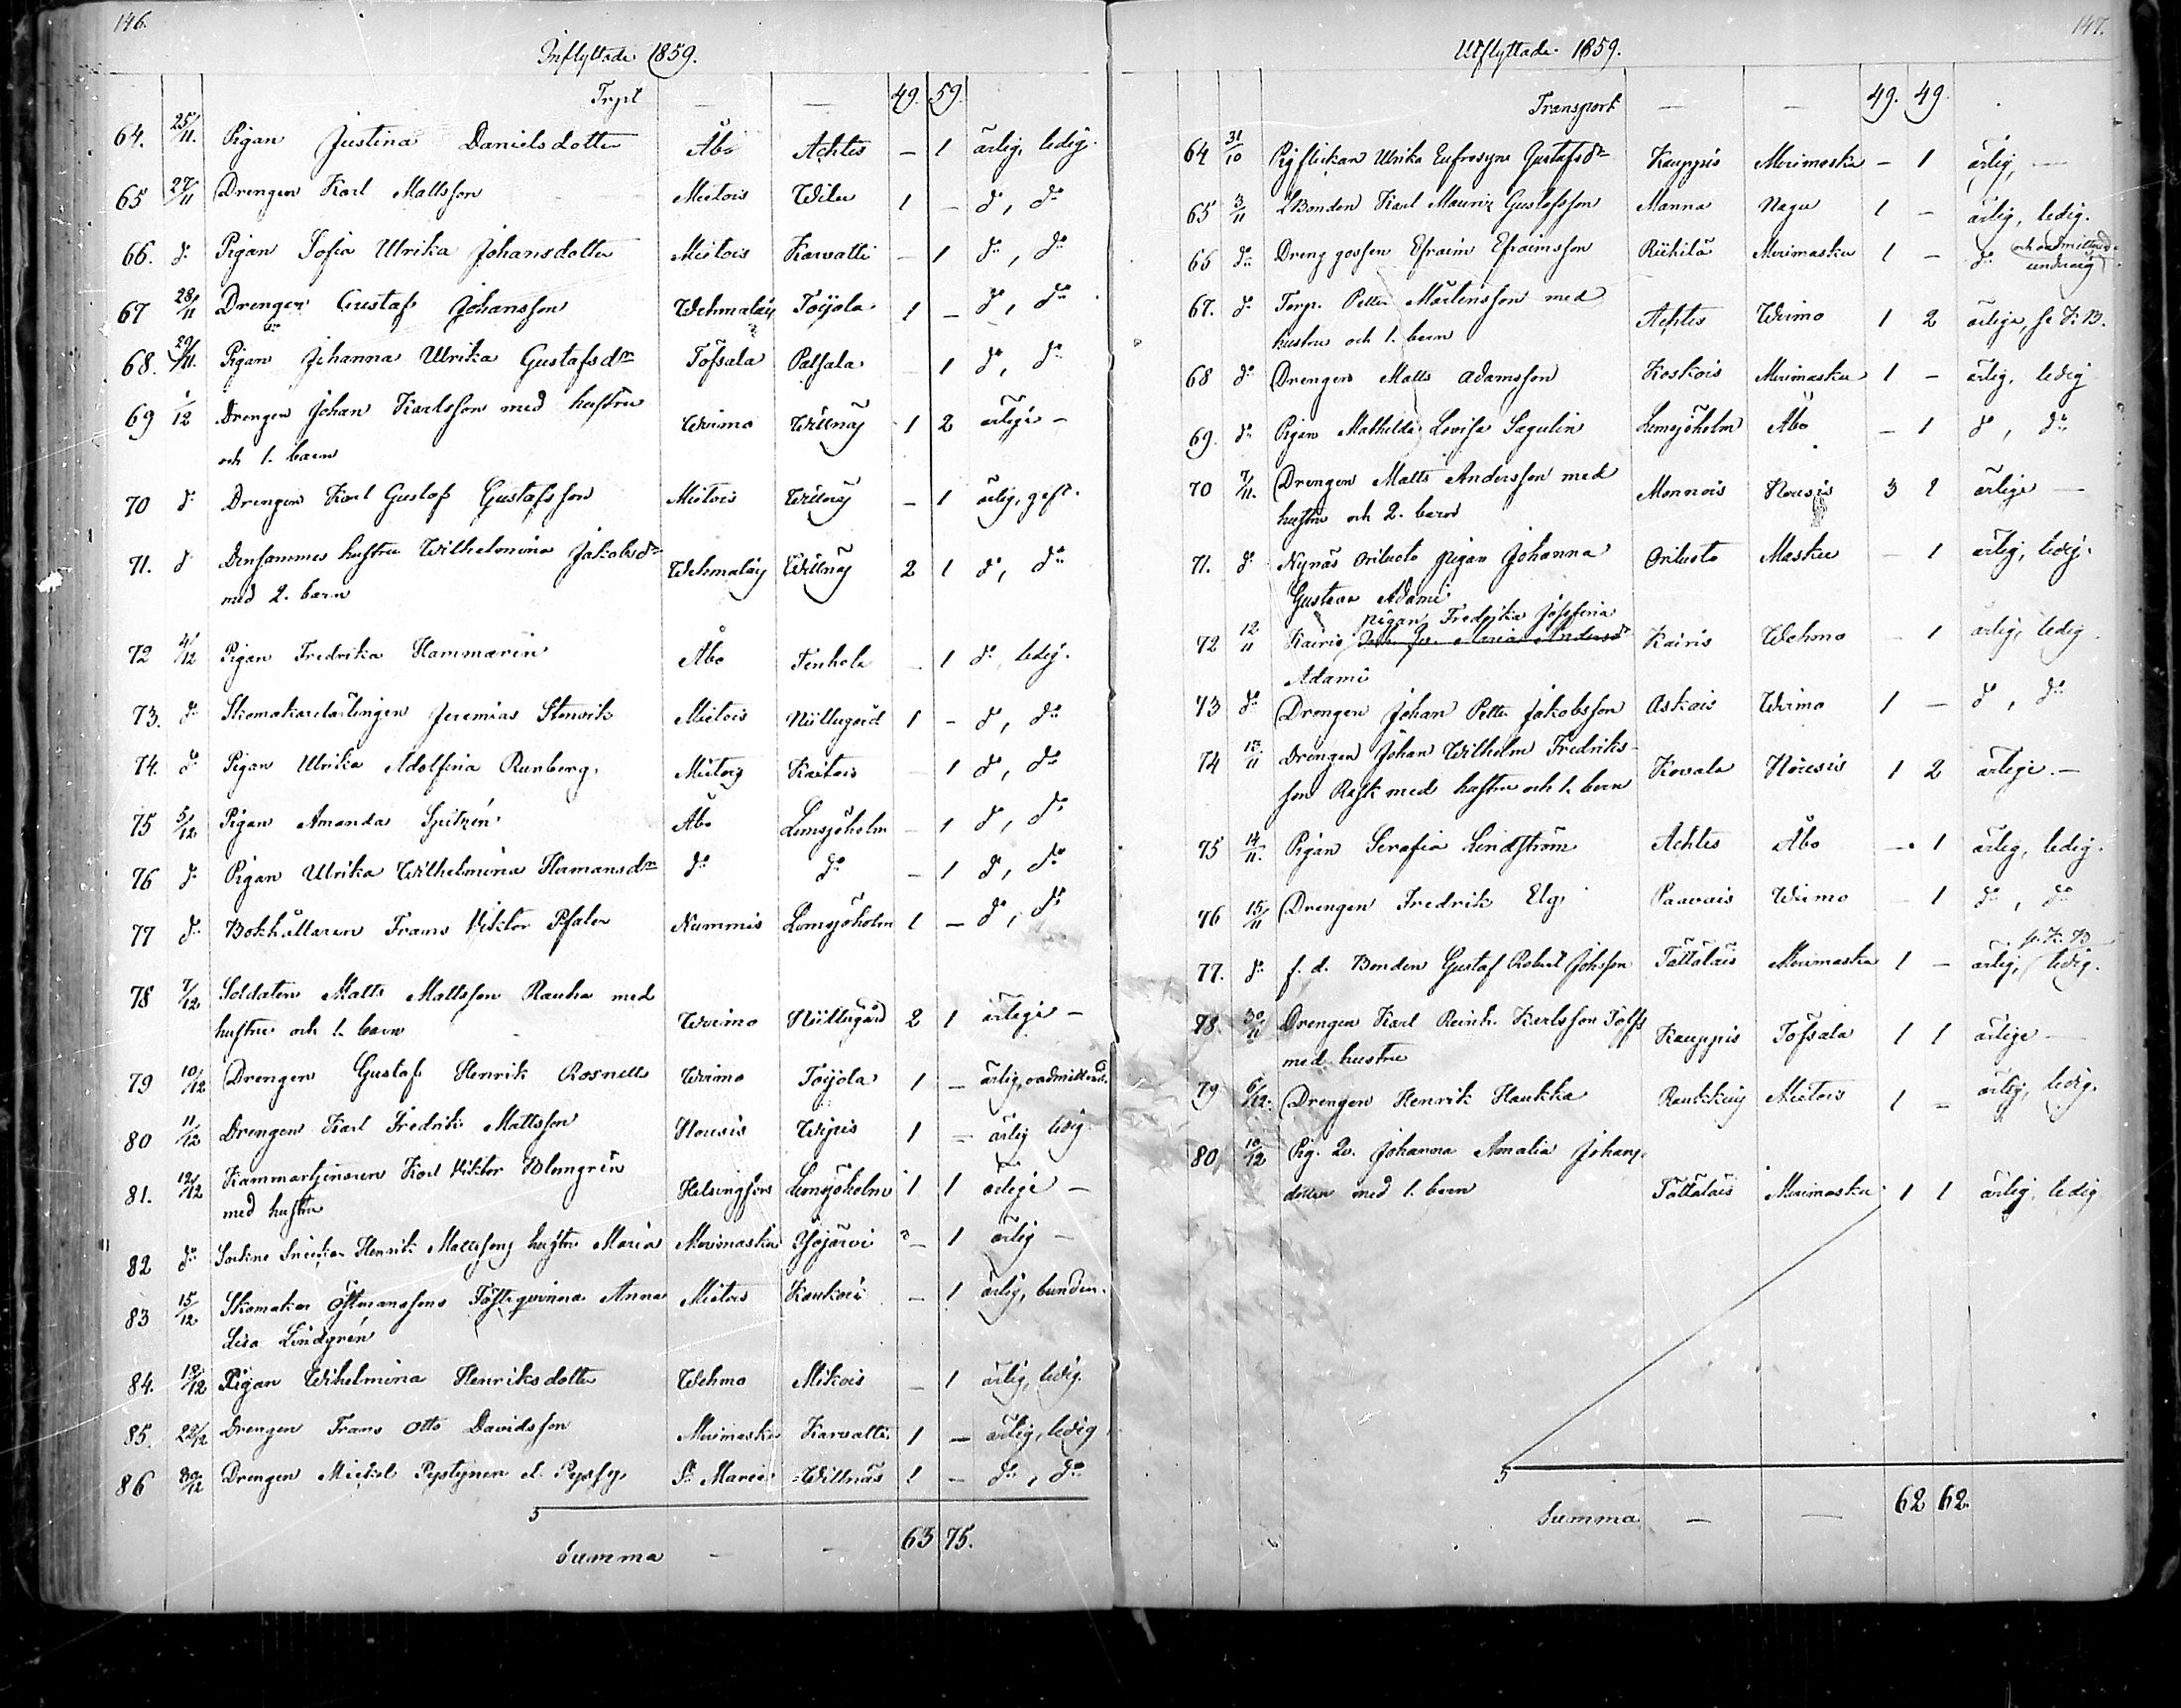 146.
Inflyttade 1859.
Trpt — — 49. 59.
64. 25/11. Pigan Justina Danielsdotter Åbo Achtis — 1 ärlig, ledig.
65 27/11 Drengen Karl Mattsson Mietois Wilu 1 — do, do
66. do Pigan Sofia Ulrika Johansdotter Mietois Karvatti — 1 do, do
67 28/11 Drengen Gustaf Johansson Wehmalay Toijola 1 — do, do
68. 29/11. Pigan Johanna Ulrika Gustafsdr Töfsala Palsala 1 do, do
69 1/12 Drengen Johan Karlsson med hustru
och 1. barn Wirmo Willnäs 1 2 ärlige —
70 do Drengen Karl Gustaf Gustafsson Mietois Willnäs — 1 ärlig, gift.
71. do Densammes hustru Wilhelmina Jakobsdr
med 2. barn Wehmalay Willnäs 2 1 do, do
72 4/12 Pigan Fredrika Hammarin Åbo Tenhola — 1 do, ledig.
73. do Skomakarelärlingen Jeremias Stenvik Mietois Nüttugård 1 — do, do
74. do Pigan Ulrika Adolfina Runberg. Mietois Kaitois — 1 do, do
75 5/12 Pigan Amanda Spitzén Åbo Lemsjöholm — 1 do, do
76 do Pigan Ulrika Wilhelmina Hermansdr do do — 1 do, do
77 do Bokhållaren Frans Viktor Pfaler Nummis Lemsjöholm 1 — do, do
78 7/12 Soldaten Matts Mattsson Rauha med
hustru och 1. barn Wirmo Nüttugård 2 1 ärlige —
79 10/12 Drengen Gustaf Henrik Rosnell Wirmo Toijola 1 — ärlig, oadmitterad.
80 11/12 Drengen Karl Fredrik Mattsson Nousis Wijais 1 — ärlig ledig
81. 12/12 Kammartjenaren Karl Viktor Blomgrén
med hustru Helsingfors Lemsjöholm 1 1 ärlige —
82 do Sockne Snickar Henrik Mattssons hustru Maria Merimasku Isojärvi — 1 ärlig —
83 15/12 Skomakar Östmanssons Fästeqvinna Anna
Lisa Lindgrén Mietois Kaukois — 1 ärlig, bunden.
84. 18/12 Pigan Wilhelmina Henriksdotter Wehmo Mikois — 1 ärlig, ledig.
85. 22/12 Drengen Frans Otto Davidsson Merimasku Karvatti 1 — ärlig, ledig
86 30/12 Drengen Mickel Pystynen St Marie Willnäs 1 — do, do
Summa — — 63 75.
147.
Utflyttade 1859.
Transport — — 49. 49.
64 31/10 Pigflickan Ulrika Eufrosyne Gustafsdr Kauppis Merimasku — 1 ärlig, —
65 3/11 LBonden Karl Mauriz Gustafsson Manna Nagu 1 — ärlig, ledig.
66 do Dreng gossen Efraim Efraimsson Riihilä Merimasku 1 — do och oadmitterad
undervig
67. do Torp. Petter Mårtensson med
hustru och 1. barn Achtis Wirmo 1 2 ärlige, se K.B.
68 do Drengen Matts Adamsson Koskois Merimasku 1 — ärlig, ledig
69. do Pigan Mathilda Lovisa Sagulin Lemsjöholm Åbo — 1 do, do
70 7/11. Drengen Matts Andersson med
hustru och 2. barn Monnois Nousis 3 1 ärlige —
71. do Nynäs Oriluoto pigan Johanna
Gustava Adami Oriluoto Masku — 1 ärlig, ledig.
pigan Fredrika Josefina
72 12/11 Kairis Maria Andersdr Kairis Wehmo — 1 ärlig, ledig.
Adami
73 do Drengen Johan Petter Jakobsson Askais Wirmo 1 — do, do
74 13/11 Drengen Johan Wilhelm Fredriks-
son Rask med hustru och 1. barn Kovala Nousis 1 2 ärlige. —
75 14/11. Pigan Serafia Lindström Achtis Åbo — 1 ärlig, ledig.
76 15/11 Drengen Fredrik Elg Paavais Wirmo — 1 do, do
se K. B
77. do f. d. Bonden Gustaf Robert Johsson Tättälais Merimasku 1 — ärlig, ledig.
78. 30/11 Drengen Karl Reinh. Karlsson Tolff
med hustru Kauppis Töfsala 1 1 ärlige —
79 6/12. Drengen Henrik Haukka Raukkais Mietois 1 — ärlig, ledig.
80 10/12 Pig. Qv. Johanna Amalia Johans
dotter med 1. barn Tättälais Merimasku 1 1 ärlig, ledig
Summa — — 62 62.